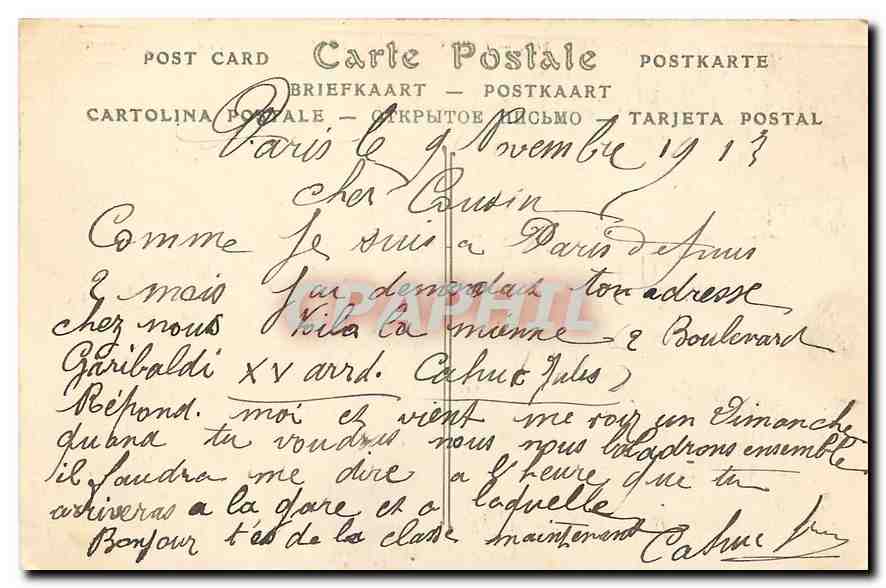 POST CARD Carte Postale POSTKARTE
BRIEFKAART — POSTKAART
CARTOLINA POSTALE — ОТКРЫТОЕ ПИСЬМО — TARJETA POSTAL
Paris le 9 Novembre 1913
cher Cousin
Comme Je suis a Paris depuis
2 mois J'ai demandait ton adresse
chez nous Voila la mienne 2 Boulevard
Garibaldi XV arrd. Cahuc Jules
Répond. moi et vient me voir un Dimanche
quand tu voudras nous nous baladrons ensemble
il faudra me dire a l'heure que tu
arriveras a la gare et a laquelle
Bonjour t'es de la classe maintenant Cahuc
CPAPHIL